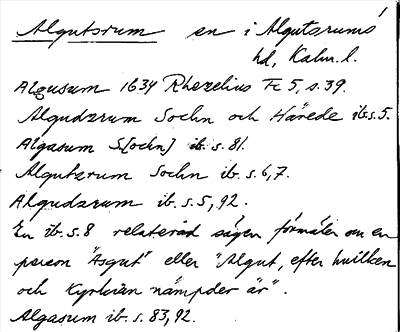 Algutsrum sn i Algutsrums
hd, Kalm. l.
Algusum 1634 Rhezelius Fc 5, s. 39.
Algudzrum Sochn och Härede ib. s. 5.
Algasum S[ochn] ib. s. 81.
Algutzrum Sochn ib. s. 6, 7.
Algudzrum ib. s. 5, 92.
En ib. s. 8 relaterad sägen förmäler om en
person "Asgut" eller "Algut, efter huilken
och Kyrkian nämpder är".
Algasum ib. s. 83, 92.